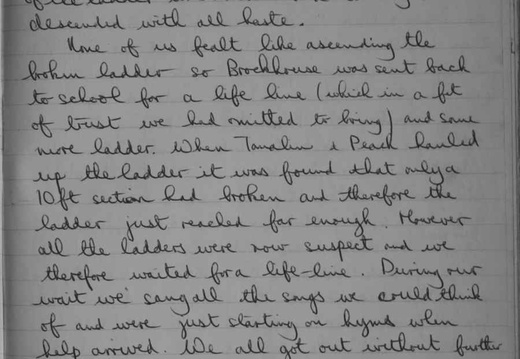 of the ladder
descended with all haste.
None of us fealt like ascending the
broken ladder so Brockhouse was sent back
to school for a life line (which in a fit
of trust we had omitted to bring) and some
more ladder. When Tamalin & Peach hauled
up the ladder it was found that only a
10ft section had broken and therefore the
ladder just reached far enough. However
all the ladders were now suspect and we
therefore waited for a life-line. During our
wait we sang all the songs we could think
of and were just starting on hyms when
help arrived. We all got out without further